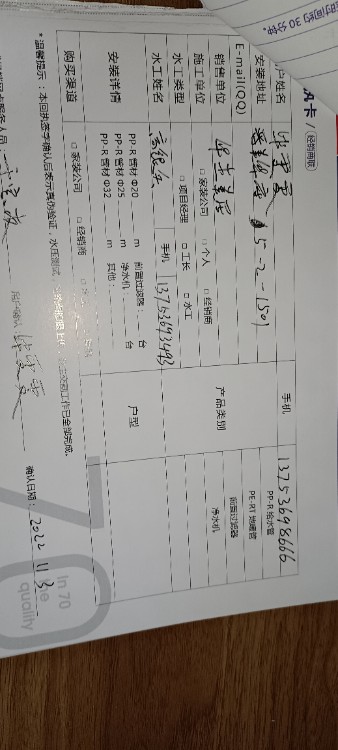 时间约 30 分钟.
风卡 / (经销商版)
户姓名 手机 13753698666
安装地址 5-2-1501 PP-R 给水管
E-mail(QQ) PE-RT 地暖管
销售单位 产品类别 前置过滤器
施工单位 □家装公司 □个人 □经销商 净水机
水工类型 □项目经理 □工长 □水工
水工姓名 手机 13753693493
安装详情 PP-R 管材 Φ20 m 前置过滤器: 台 户型
PP-R 管材 Φ25 m 净水机: 台
PP-R 管材 Φ32 m 其他:
购买渠道 □家装公司 □经销商
*温馨提示:本回执签字确认后表示真伪验证、水压测试、 工作已全部完成。
确认日期: 2022 11 3
in 70
quality